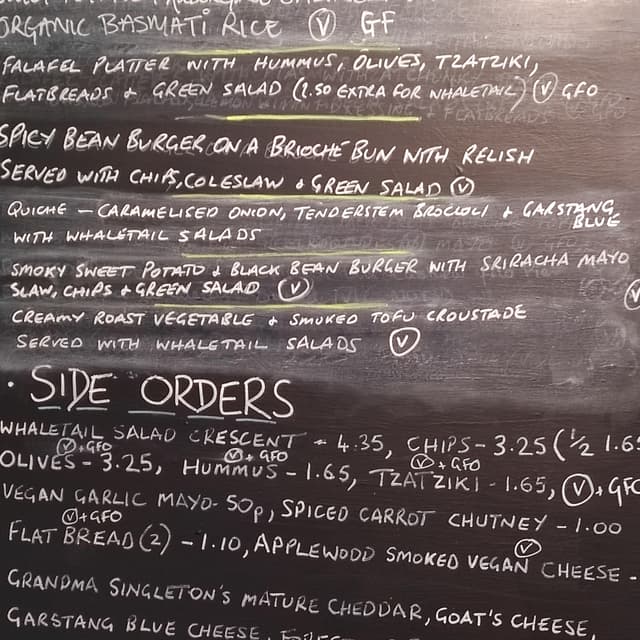 ORGANIC BASMATI RICE Ⓥ GF
FALAFEL PLATTER WITH HUMMUS, OLIVES, TZATZIKI,
FLATBREADS & GREEN SALAD (1.50 EXTRA FOR WHALETAIL) Ⓥ GFO
SPICY BEAN BURGER ON A BRIOCHE BUN WITH RELISH
SERVED WITH CHIPS, COLESLAW & GREEN SALAD Ⓥ
QUICHE – CARAMELISED ONION, TENDERSTEM BROCCOLI & GARSTANG
BLUE
WITH WHALETAIL SALADS
SMOKY SWEET POTATO & BLACK BEAN BURGER WITH SRIRACHA MAYO
SLAW, CHIPS & GREEN SALAD Ⓥ
Ⓥ
CREAMY ROAST VEGETABLE & SMOKED TOFU CROUSTADE
SERVED WITH WHALETAIL SALADS Ⓥ
· SIDE ORDERS
WHALETAIL SALAD CRESCENT – 4.35, CHIPS – 3.25 (½ 1.65
Ⓥ+GFO Ⓥ+GFO Ⓥ+GFO
OLIVES – 3.25, HUMMUS – 1.65, TZATZIKI – 1.65, Ⓥ+GFO
VEGAN GARLIC MAYO – 50p, SPICED CARROT CHUTNEY – 1.00
Ⓥ+GFO Ⓥ
FLAT BREAD (2) – 1.10, APPLEWOOD SMOKED VEGAN CHEESE –
GRANDMA SINGLETON'S MATURE CHEDDAR, GOAT'S CHEESE,
GARSTANG BLUE CHEESE,